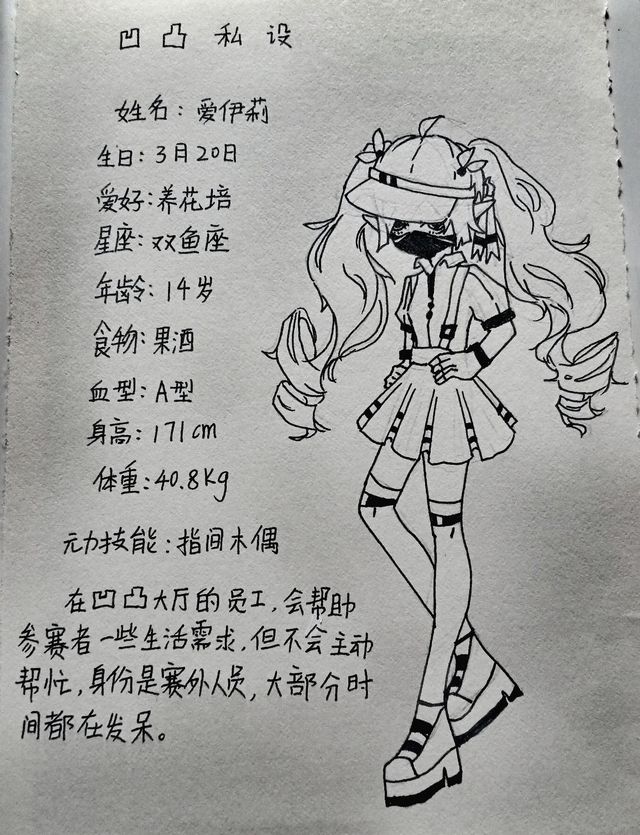 凹 凸 私 设
姓名：爱伊莉
生日：3月20日
爱好：养花培
星座：双鱼座
年龄：14岁
食物：果酒
血型：A型
身高：171cm
体重：40.8Kg
元力技能：指间木偶
在凹凸大厅的员工，会帮助
参赛者一些生活需求，但不会主动
帮忙，身份是赛外人员，大部分时
间都在发呆。